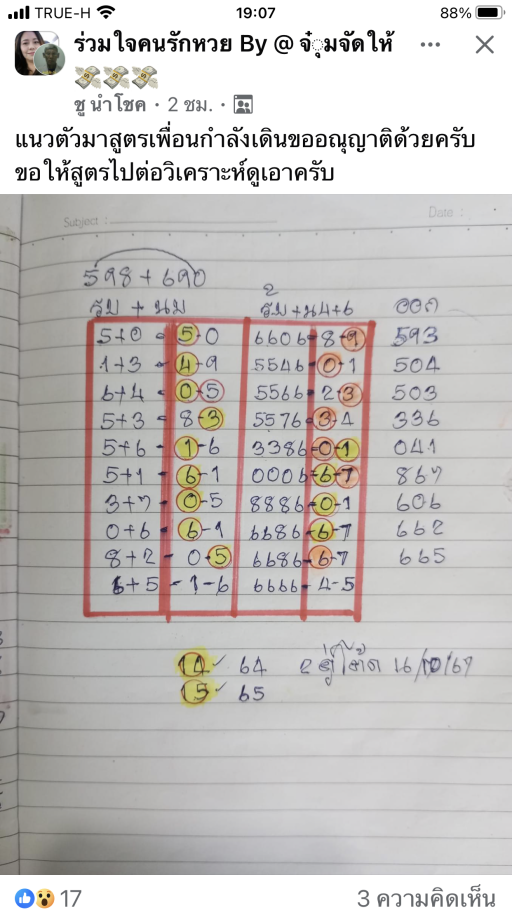 TRUE-H 19:07 88%
ร่วมใจคนรักหวย By @ จุ๋มจัดให้
ชู นำโชค · 2 ชม.
แนวตัวมาสูตรเพื่อนกำลังเดินขออณุญาติด้วยครับ
ขอให้สูตรไปต่อวิเคราะห์ดูเอาครับ
Subject : Date :
598 + 690
รูป + นบ +น4+6 ออก
5+0 = 5-0 6606 = 8-9 593
1+3 = 4-9 5546 = 0-1 504
6+4 = 0-5 5566 = 2-3 503
5+3 = 8-3 5576 = 3-4 336
5+6 - 1-6 3386 = 0-1 041
5+1 = 6-1 0006 = 6-7 867
3+7 - 0-5 8886 = 0-1 606
0+6 - 6-1 6686 - 6-7 662
8+2 - 0-5 6686 - 6-7 665
6+5 - 1-6 6666 - 4-5
14 64 16/10/67
15 65
17 3 ความคิดเห็น